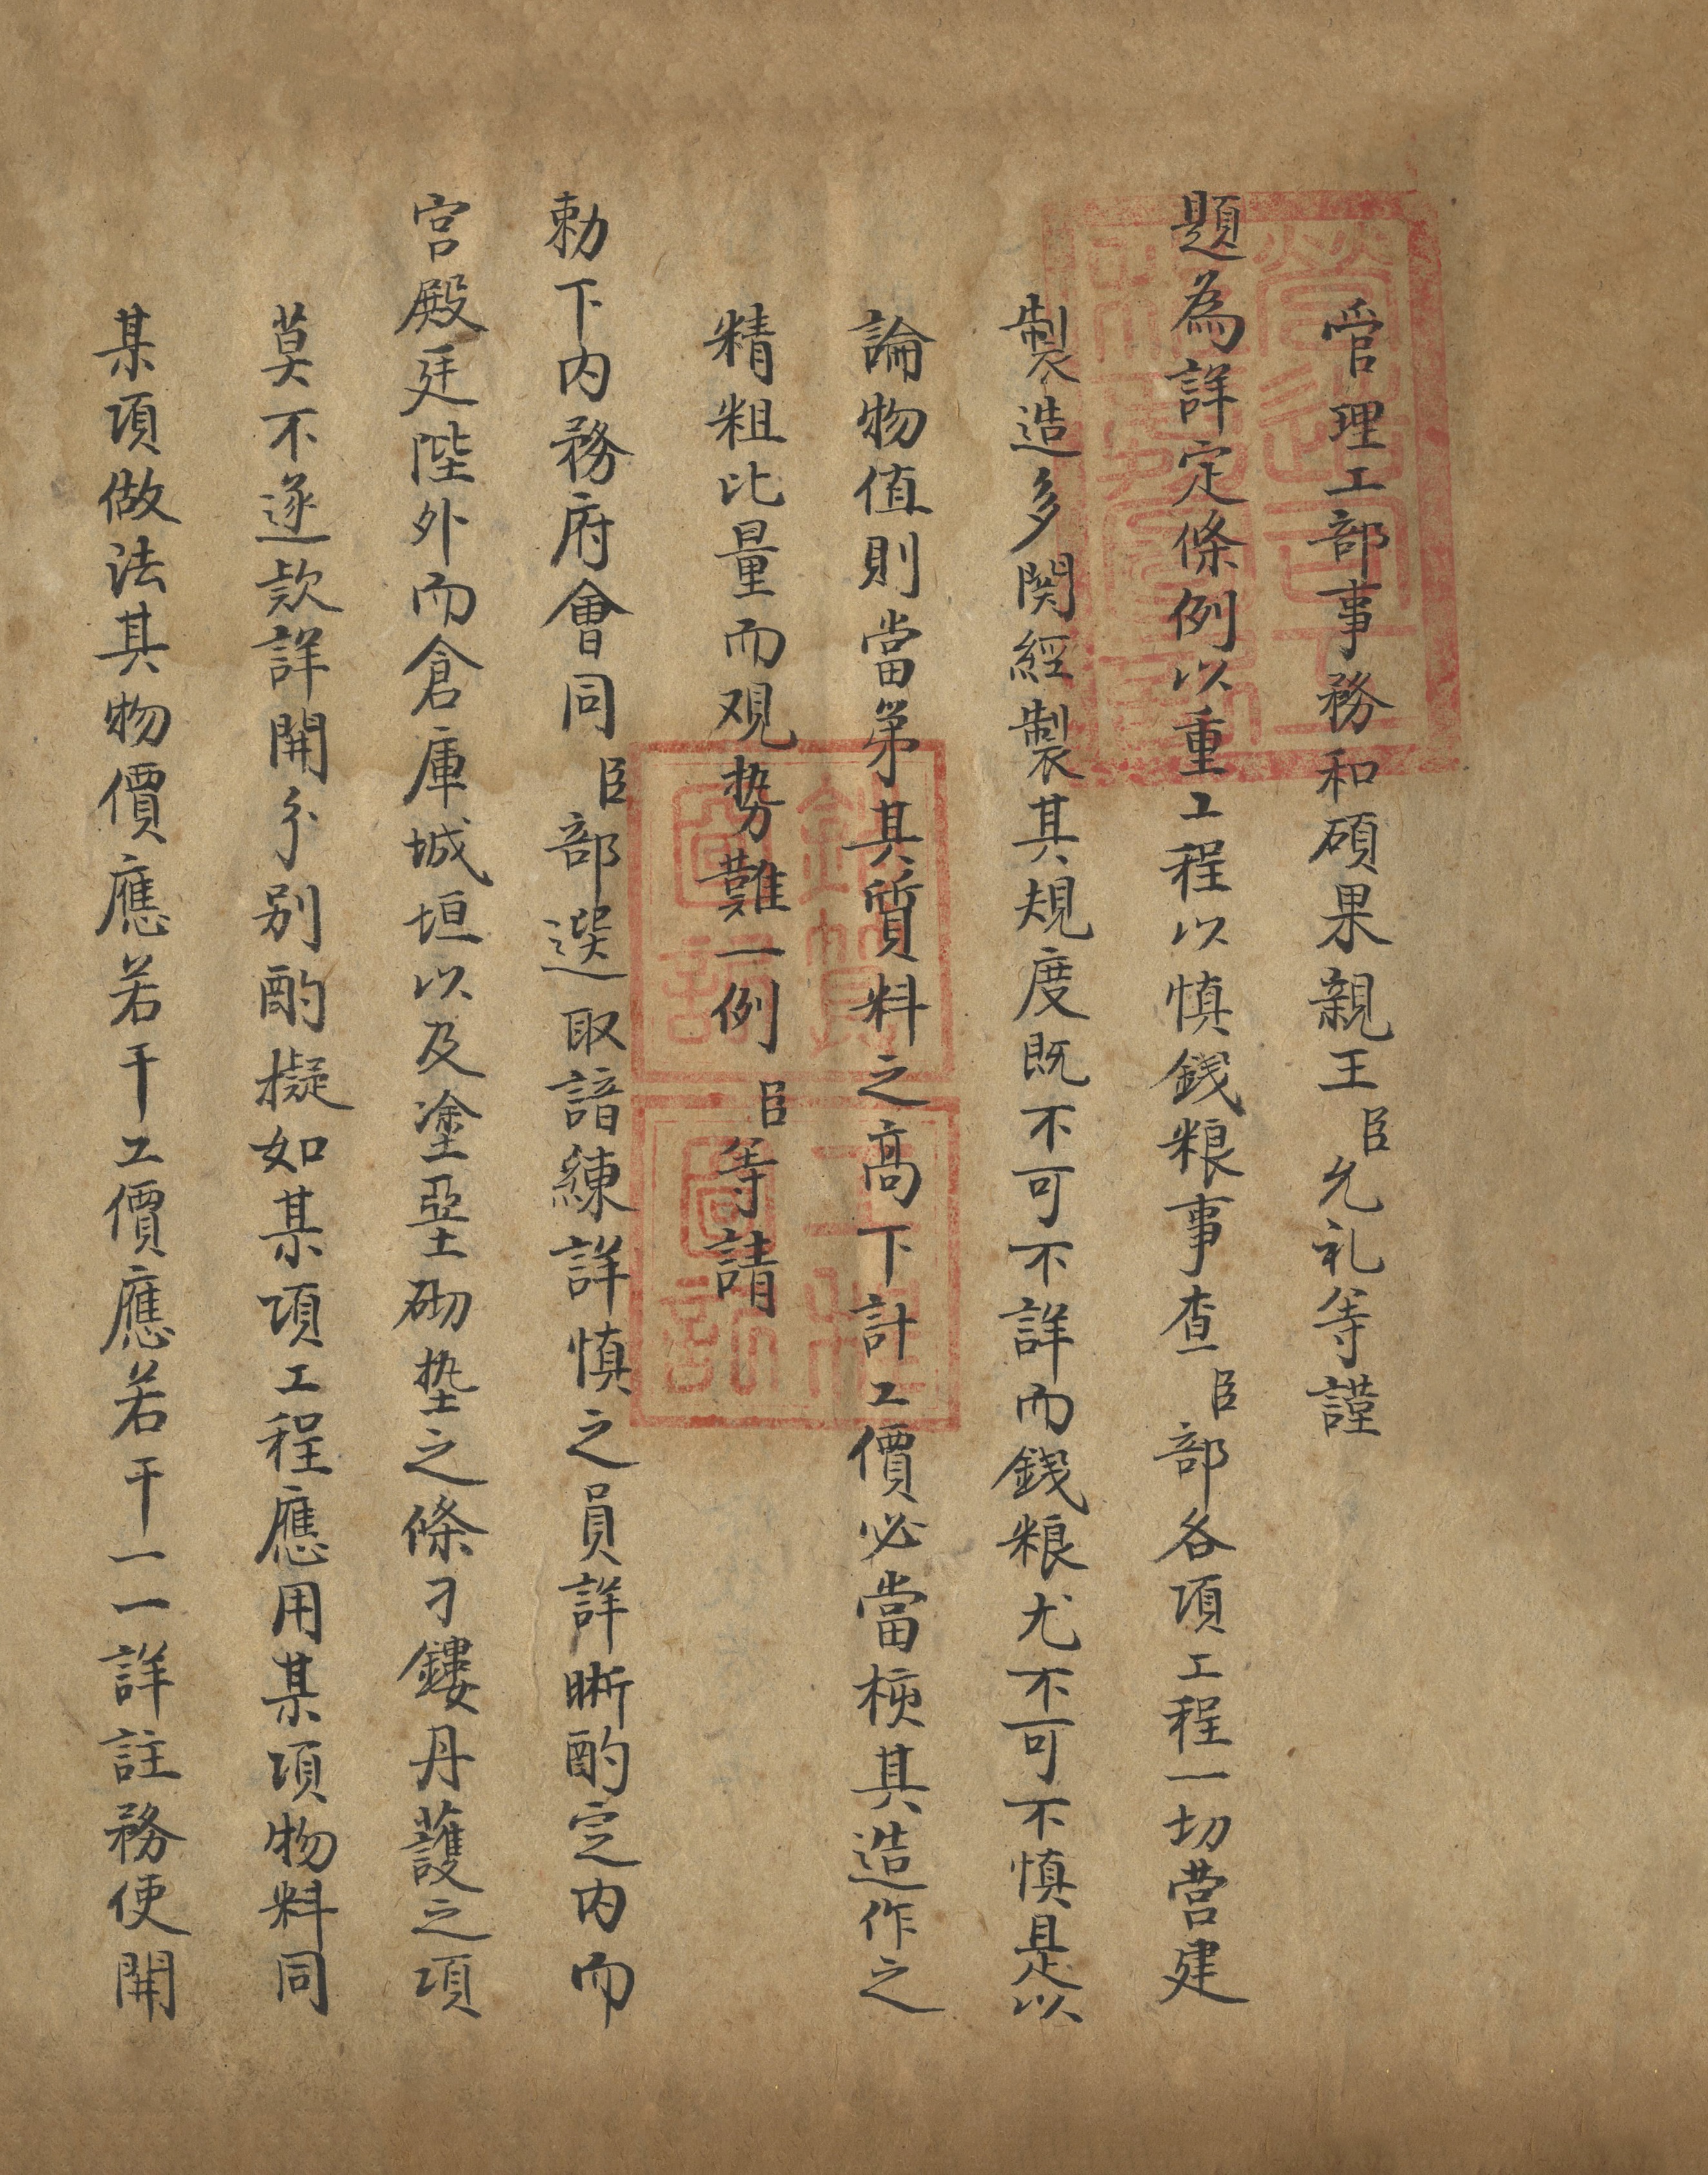 管理工部事務和碩果親王臣允礼等謹
題為詳定條例以重工程以慎錢粮事查臣部各項工程一切营建
製造多関經製其規度既不可不詳而錢粮尤不可不慎是以
論物值則當第其質料之高下計工價必當核其造作之
精粗比量而观势難一例臣等請
勅下内務府會同臣部選取諳練詳慎之員詳晰酌定内而
宫殿廷陛外而倉庫城垣以及塗塈砌垫之條刁鏤丹護之項
莫不逐欵詳開分别酌擬如某項工程應用某項物料同
某項做法其物價應若干工價應若干一一詳註務使開